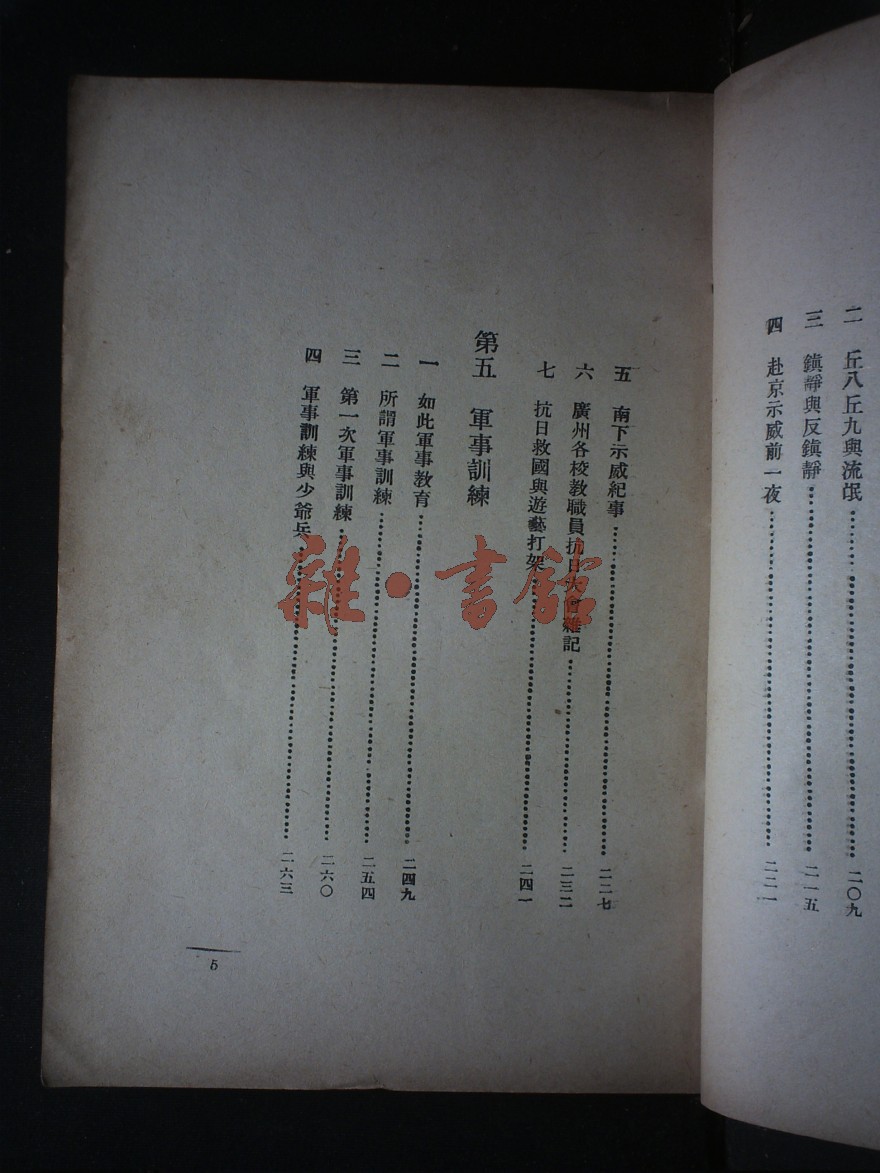 二　丘八丘九與流氓……二〇九
三　鎮靜與反鎮靜……二一五
四　赴京示威前一夜……二二一
五　南下示威紀事……二二七
六　廣州各校教職員抗日大會雜記……二三二
七　抗日救國與遊藝打架……二四一
第五　軍事訓練
一　如此軍事教育……二四九
二　所謂軍事訓練……二五四
三　第一次軍事訓練……二六〇
四　軍事訓練與少爺兵……二六三
5
雜·書館